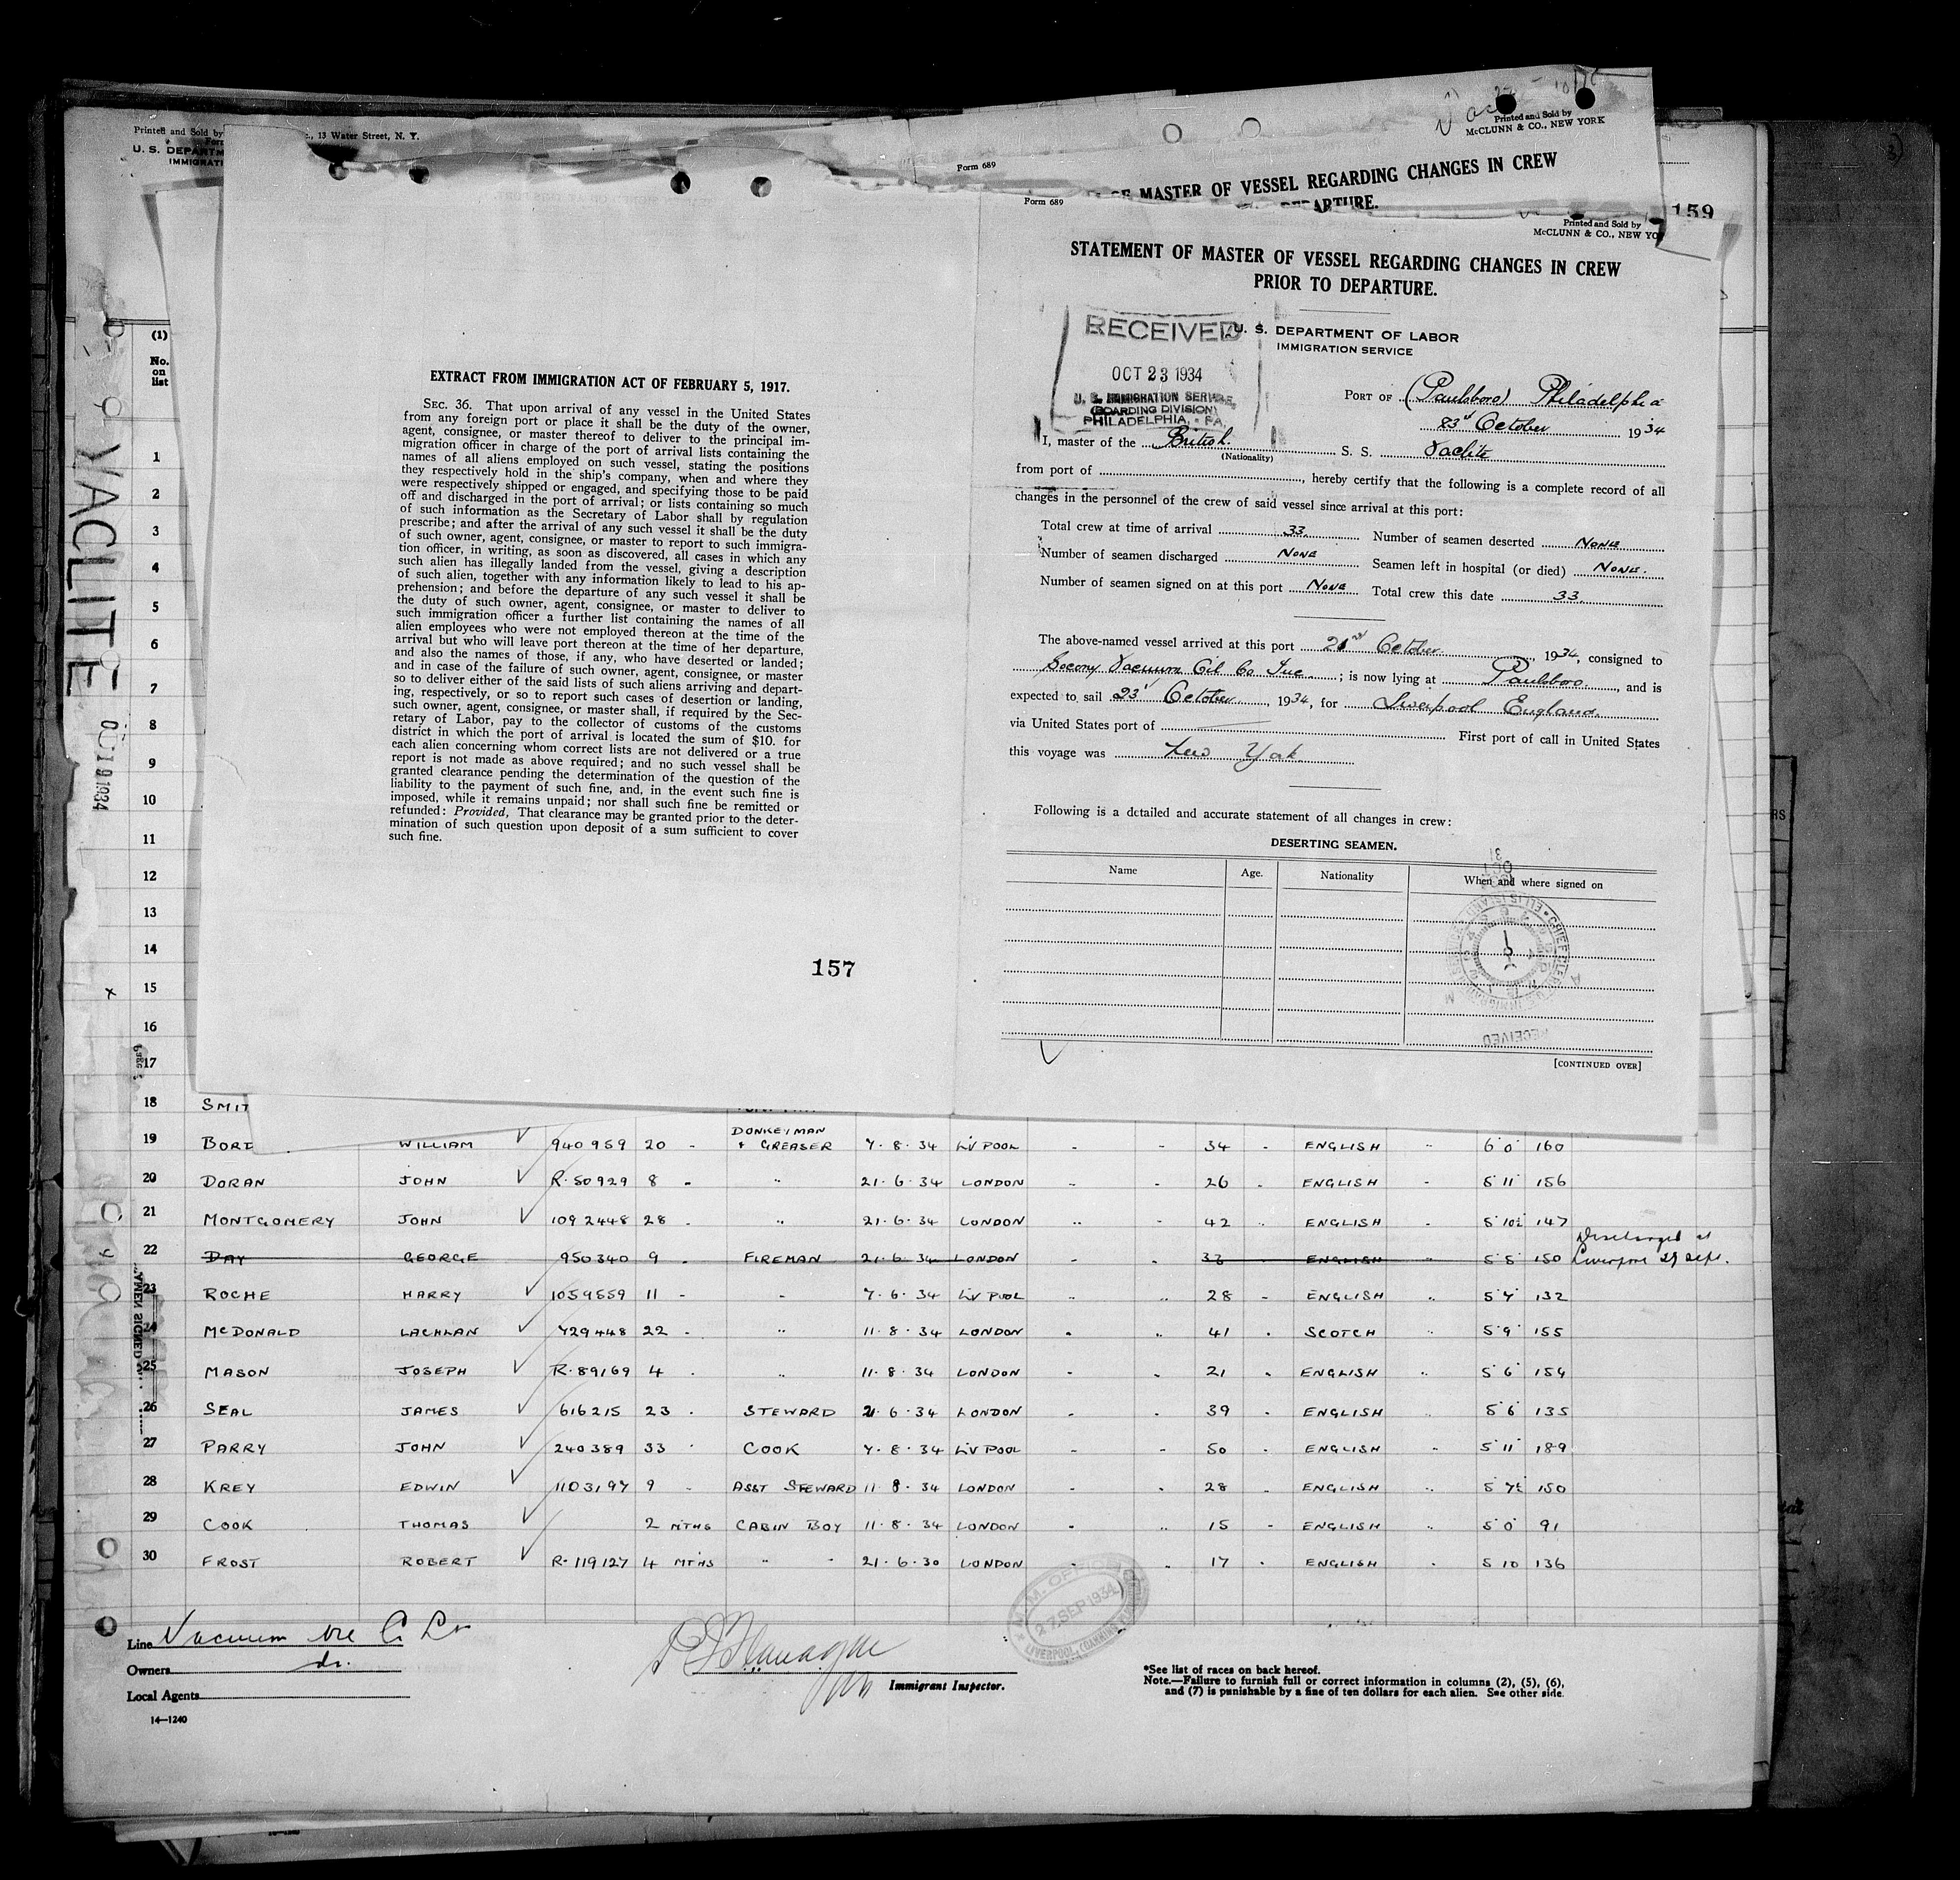 Printed and Sold by
., 13 Water Street, N. Y.
U. S. DEPARTM
IMMIGRATI
Printed and Sold by
McCLUNN & CO., NEW YORK
Form 689
MASTER OF VESSEL REGARDING CHANGES IN CREW
DEPARTURE.
159
Form 689
Printed and Sold by
McCLUNN & CO., NEW YO
STATEMENT OF MASTER OF VESSEL REGARDING CHANGES IN CREW
PRIOR TO DEPARTURE.
RECEIVED
OCT 23 1934
U. S. IMMIGRATION SERVICE
(BOARDING DIVISION)
PHILADELPHIA, PA.
U. S. DEPARTMENT OF LABOR
IMMIGRATION SERVICE
PORT OF (Paulsboro) Philadelphia
23rd October 1934
I, master of the British S. S. Vaclite
(Nationality)
from port of , hereby certify that the following is a complete record of all
changes in the personnel of the crew of said vessel since arrival at this port:
Total crew at time of arrival 33 Number of seamen deserted NONE
Number of seamen discharged NONE Seamen left in hospital (or died) NONE.
Number of seamen signed on at this port NONE Total crew this date 33
The above-named vessel arrived at this port October 1934, consigned to
Socony Vacuum Oil Co Inc ; is now lying at Paulsboro , and is
expected to sail 23rd October , 1934, for Liverpool England.
via United States port of First port of call in United States
this voyage was New York
Following is a detailed and accurate statement of all changes in crew:
DESERTING SEAMEN.
Name Age. Nationality When and where signed on
RECEIVED
[CONTINUED OVER]
EXTRACT FROM IMMIGRATION ACT OF FEBRUARY 5, 1917.
SEC. 36. That upon arrival of any vessel in the United States
from any foreign port or place it shall be the duty of the owner,
agent, consignee, or master thereof to deliver to the principal im-
migration officer in charge of the port of arrival lists containing the
names of all aliens employed on such vessel, stating the positions
they respectively hold in the ship's company, when and where they
were respectively shipped or engaged, and specifying those to be paid
off and discharged in the port of arrival; or lists containing so much
of such information as the Secretary of Labor shall by regulation
prescribe; and after the arrival of any such vessel it shall be the duty
of such owner, agent, consignee, or master to report to such immigra-
tion officer, in writing, as soon as discovered, all cases in which any
such alien has illegally landed from the vessel, giving a description
of such alien, together with any information likely to lead to his ap-
prehension; and before the departure of any such vessel it shall be
the duty of such owner, agent, consignee, or master to deliver to
such immigration officer a further list containing the names of all
alien employees who were not employed thereon at the time of the
arrival but who will leave port thereon at the time of her departure,
and also the names of those, if any, who have deserted or landed;
and in case of the failure of such owner, agent, consignee, or master
so to deliver either of the said lists of such aliens arriving and depart-
ing, respectively, or so to report such cases of desertion or landing,
such owner, agent, consignee, or master shall, if required by the Sec-
retary of Labor, pay to the collector of customs of the customs
district in which the port of arrival is located the sum of $10. for
each alien concerning whom correct lists are not delivered or a true
report is not made as above required; and no such vessel shall be
granted clearance pending the determination of the question of the
liability to the payment of such fine, and, in the event such fine is
imposed, while it remains unpaid; nor shall such fine be remitted or
refunded: Provided, That clearance may be granted prior to the deter-
mination of such question upon deposit of a sum sufficient to cover
such fine.
157
VACLITE
(1)
No.
on
list
1
2
3
4
5
6
7
8
9
10
11
12
13
14
15
16
17
18 SMIT
19 WILLIAM 940959 20 DONKEYMAN & GREASER 7.8.34 L'VPOOL 34 ENGLISH 6'0" 160
20 DORAN JOHN R.50929 8 " 21.6.34 LONDON 26 ENGLISH 5'11" 156
21 MONTGOMERY JOHN 1092448 28 " 21.6.34 LONDON 42 ENGLISH 5'10½ 147
22 DAY GEORGE 950340 9 FIREMAN 21.6.34 LONDON ENGLISH 5'5" 150 Discharged at Liverpool 27 Sept.
23 ROCHE HARRY 1059559 11 " 7.6.34 L'VPOOL 28 ENGLISH 5'7" 132
24 McDONALD LACHLAN 729448 22 " 11.8.34 LONDON 41 SCOTCH 5'9" 155
25 MASON JOSEPH R.89169 4 " 11.8.34 LONDON 21 ENGLISH 5'6" 154
26 SEAL JAMES 616215 23 STEWARD 21.6.34 LONDON 39 ENGLISH 5'6" 135
27 PARRY JOHN 240389 33 COOK 7.8.34 L'VPOOL 50 ENGLISH 5'11" 189
28 KREY EDWIN 1103197 9 ASST STEWARD 11.8.34 LONDON 28 ENGLISH 5'7½ 150
29 COOK THOMAS 2 MTHS CABIN BOY 11.8.34 LONDON 15 ENGLISH 5'0" 91
30 FROST ROBERT R.119127 4 MTHS " " 21.6.30 LONDON 17 ENGLISH 5 10 136
Line Vacuum Oil Co Ltd
Owners do.
Local Agents
14—1240
Immigrant Inspector.
27 SEP 1934
*See list of races on back hereof.
Note.—Failure to furnish full or correct information in columns (2), (5), (6),
and (7) is punishable by a fine of ten dollars for each alien. See other side.